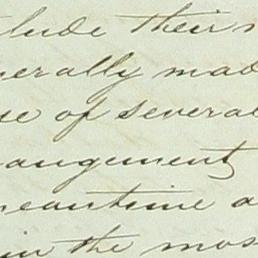 clude their
nerally mad
se of several
rangement
meantime a
in the mos